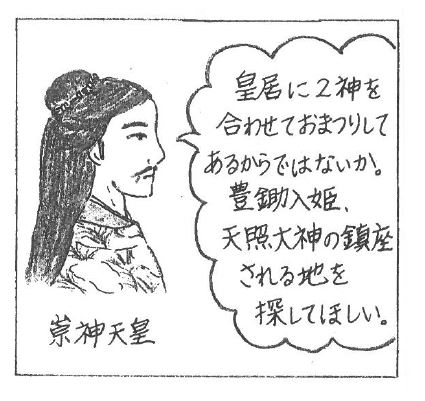 皇居に2神を
合わせておまつりして
あるからではないか。
豊鋤入姫、
天照大神の鎮座
される地を
探してほしい。
崇神天皇